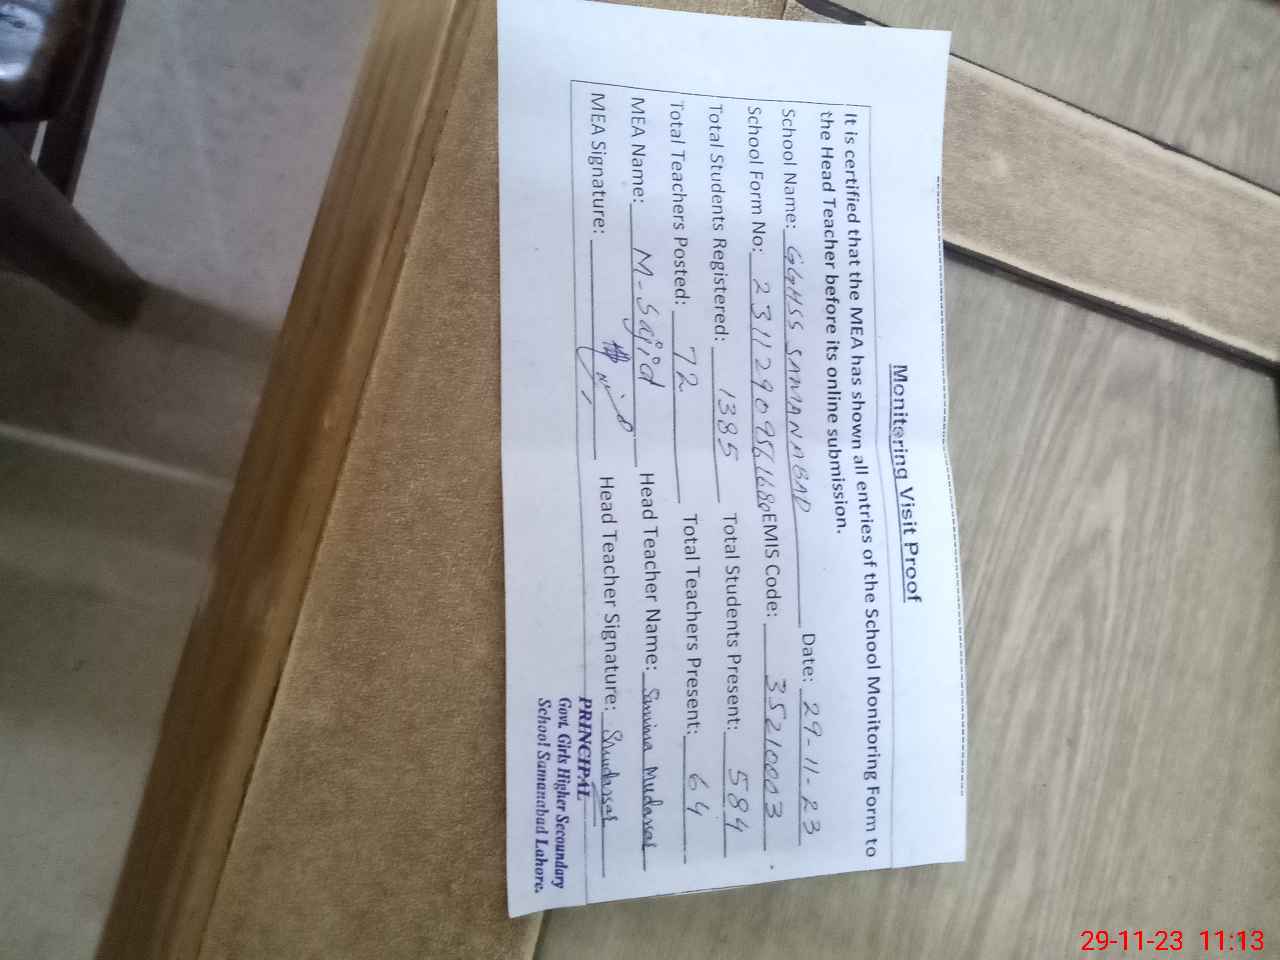 Monitoring Visit Proof
It is certified that the MEA has shown all entries of the School Monitoring Form to
the Head Teacher before its online submission.
School Name: GGHSS SAMANABAD Date: 29-11-23
School Form No: 2311290956168 EMIS Code: 35210003
Total Students Registered: 1385 Total Students Present: 584
Total Teachers Posted: 72 Total Teachers Present: 64
MEA Name: M-Sajid Head Teacher Name: Mudassar
MEA Signature: Head Teacher Signature:
PRINCIPAL
Govt. Girls Higher Secoundary
School Samanabad Lahore.
29-11-23 11:13